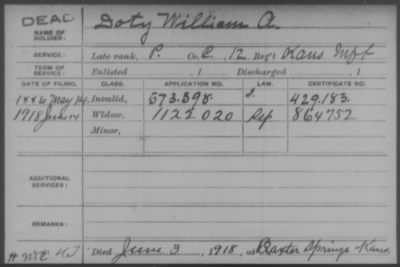 DEAD
NAME OF SOLDIER: Doty William A.
SERVICE: Late rank, P. Co. C, 12 Reg't Kans Inff
TERM OF SERVICE: Enlisted , 1 Discharged , 1
DATE OF FILING. CLASS. APPLICATION NO. LAW. CERTIFICATE NO.
1886 May 14, Invalid, 573.598 429.183.
1918 June 14 Widow, 1122 020 864752
Minor,
ADDITIONAL SERVICES:
REMARKS:
Died June 3, 1918, at Baxter Springs - Kans.